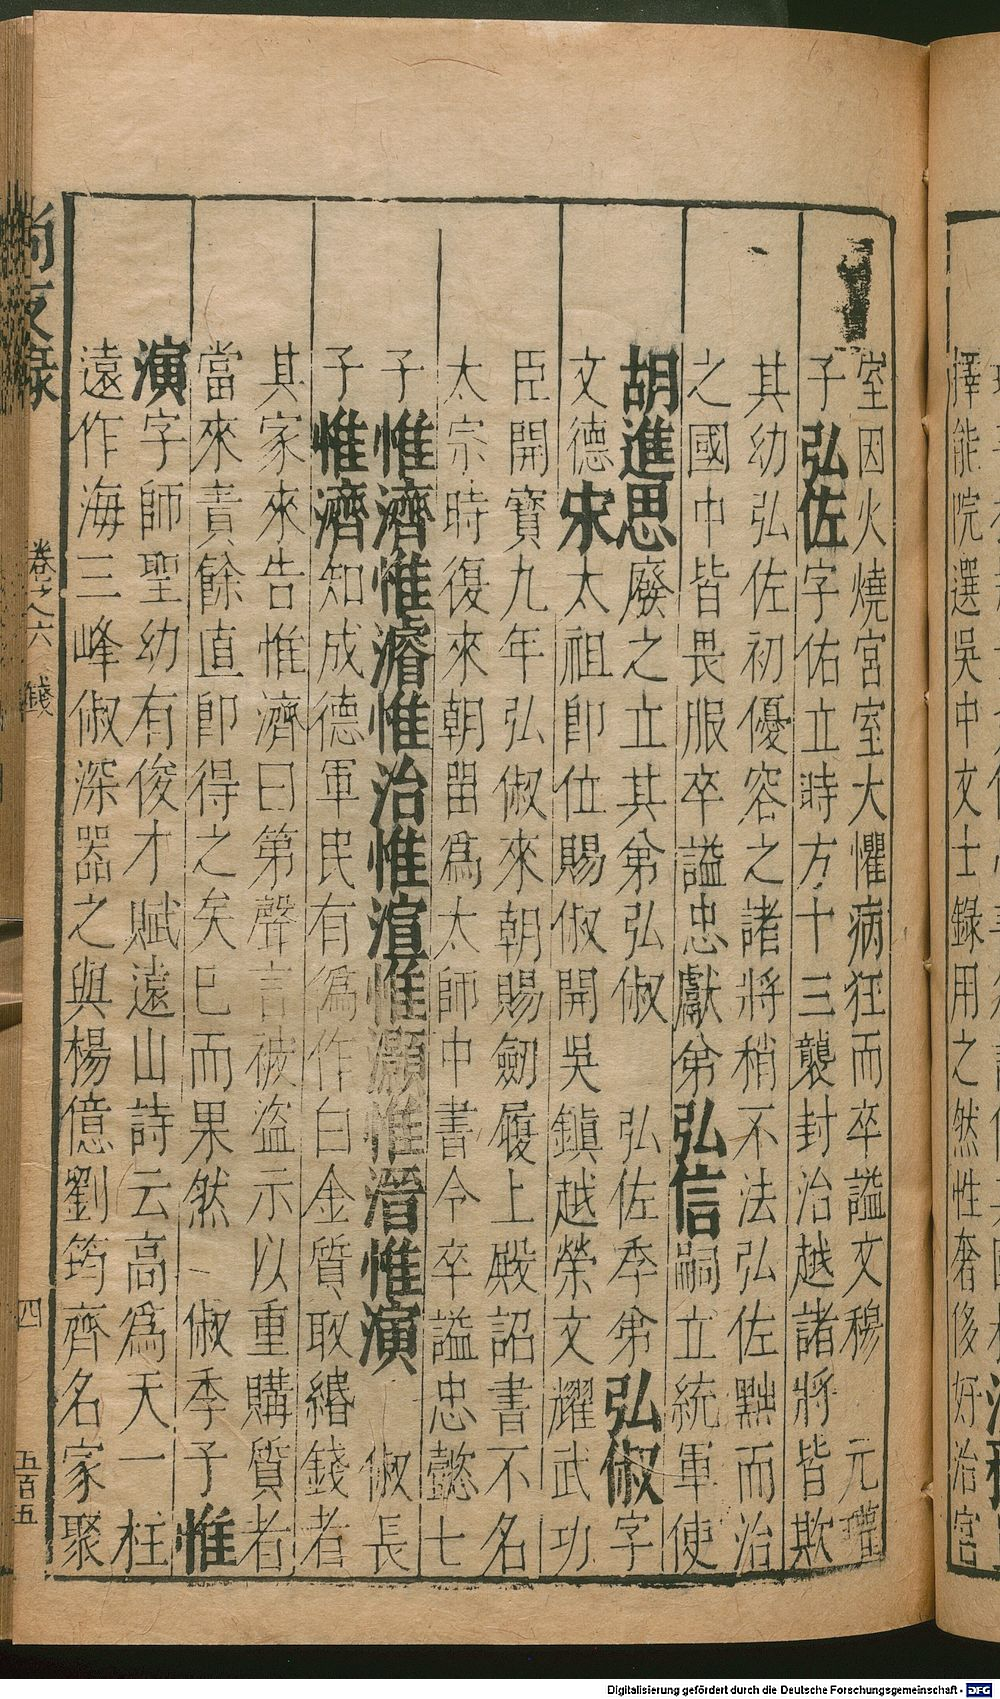 室因火燒宮室大懼病狂而卒謚文穆 元瓘
子弘佐字佑立時方十三襲封治越諸將皆欺
其幼弘佐初優容之諸將稍不法弘佐黜而治
之國中皆畏服卒謚忠獻弟弘信嗣立統軍使
胡進思廢之立其弟弘俶 弘佐季弟弘俶字
文德宋太祖即位賜俶開吳鎮越榮文耀武功
臣開寶九年弘俶來朝賜劒履上殿詔書不名
太宗時復來朝畱爲太師中書令卒謚忠懿七
子惟濟惟濬惟治惟渲惟灝惟溍惟演 俶長
子惟濟知成德軍民有爲作白金質取緡錢者
其家來告惟濟曰第聲言被盜示以重購質者
當來責餘直卽得之矣已而果然 俶季子惟
演字師聖幼有俊才賦遠山詩云高爲天一柱
遠作海三峰俶深器之與楊億劉筠齊名家聚
尚友錄 卷之六 錢 四 五百五
擇能院選吳中文士錄用之然性奢侈好治宮
Digitalisierung gefördert durch die Deutsche Forschungsgemeinschaft - DFG